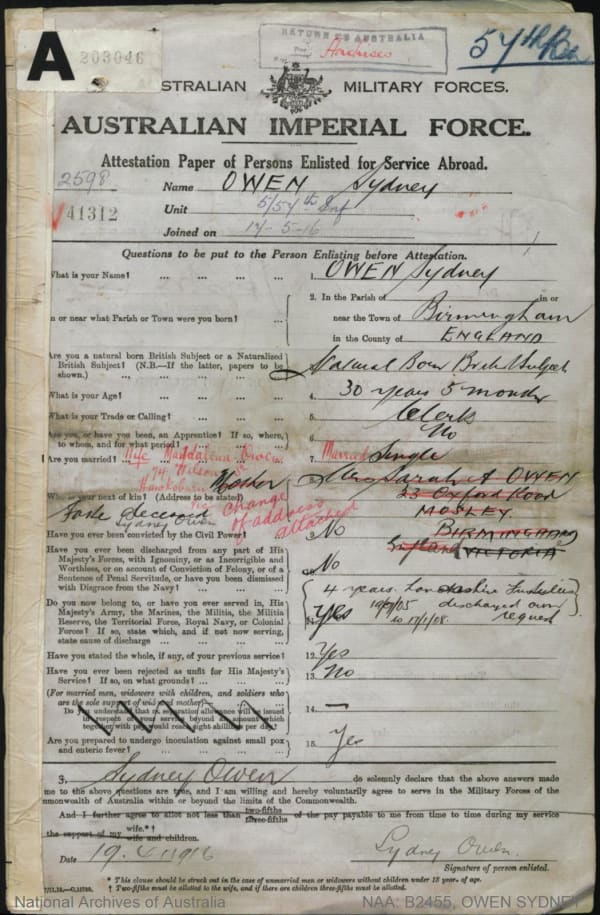 A
203046
RETURN TO AUSTRALIA
57th Bn
AUSTRALIAN MILITARY FORCES.
AUSTRALIAN IMPERIAL FORCE.
Attestation Paper of Persons Enlisted for Service Abroad.
2598
Name OWEN Sydney
41312
Unit 5/57th Inf
Joined on 17-5-16
Questions to be put to the Person Enlisting before Attestation.
What is your Name? ... ... ... 1. OWEN Sydney
2. In the Parish of in or
In or near what Parish or Town were you born? ... near the Town of Birmingham
in the County of ENGLAND
Are you a natural born British Subject or a Naturalized
British Subject? (N.B.—If the latter, papers to be
shown.) ... 3. Natural Born British Subject
What is your Age? ... ... ... 4. 30 years 5 months
What is your Trade or Calling? ... ... 5. Clerk
Are you, or have you been, an Apprentice? If so, where,
to whom, and for what period? ... 6. No
Are you married? ... 7. Married Single
Wife Maddalena Owen
74 Wilson
Hawksburn
Who is your next of kin? (Address to be stated) Mother Mrs Sarah A OWEN
33 Oxford Road
MOSLEY
BIRMINGHAM
England VICTORIA
deceased
Sydney Owen
change
of address
attached
Have you ever been convicted by the Civil Power? No
Have you ever been discharged from any part of His
Majesty's Forces, with Ignominy, or as Incorrigible and
Worthless, or on account of Conviction of Felony, or of a
Sentence of Penal Servitude, or have you been dismissed
with Disgrace from the Navy? ... No
Do you now belong to, or have you ever served, in, His
Majesty's Army, the Marines, the Militia, the Militia
Reserve, the Territorial Force, Royal Navy, or Colonial
Forces? If so, state which, and if not now serving,
state cause of discharge ... Yes
4 years. Lancashire Fusiliers
discharged own
request
to 17/1/08.
Have you stated the whole, if any, of your previous service? 12. Yes
Have you ever been rejected as unfit for His Majesty's
Service? If so, on what grounds? ... 13. No
(For married men, widowers with children, and soldiers who
are the sole support of widowed mother—
Do you understand that no separation allowance will be issued
in respect of your service beyond an amount which
together with pay would reach eight shillings per day? 14. —
Are you prepared to undergo inoculation against small pox
and enteric fever? ... 15. Yes
I, Sydney Owen do solemnly declare that the above answers made
by me to the above questions are true, and I am willing and hereby voluntarily agree to serve in the Military Forces of the
Commonwealth of Australia within or beyond the limits of the Commonwealth.
And I further agree to allot not less than two-fifths three-fifths of the pay payable to me from time to time during my service
the support of my wife.*† wife and children.
Date 19.4.1916
Sydney Owen.
Signature of person enlisted.
* This clause should be struck out in the case of unmarried men or widowers without children under 18 years of age.
† Two-fifths must be allotted to the wife, and if there are children three-fifths must be allotted.
National Archives of Australia
NAA: B2455, OWEN SYDNEY